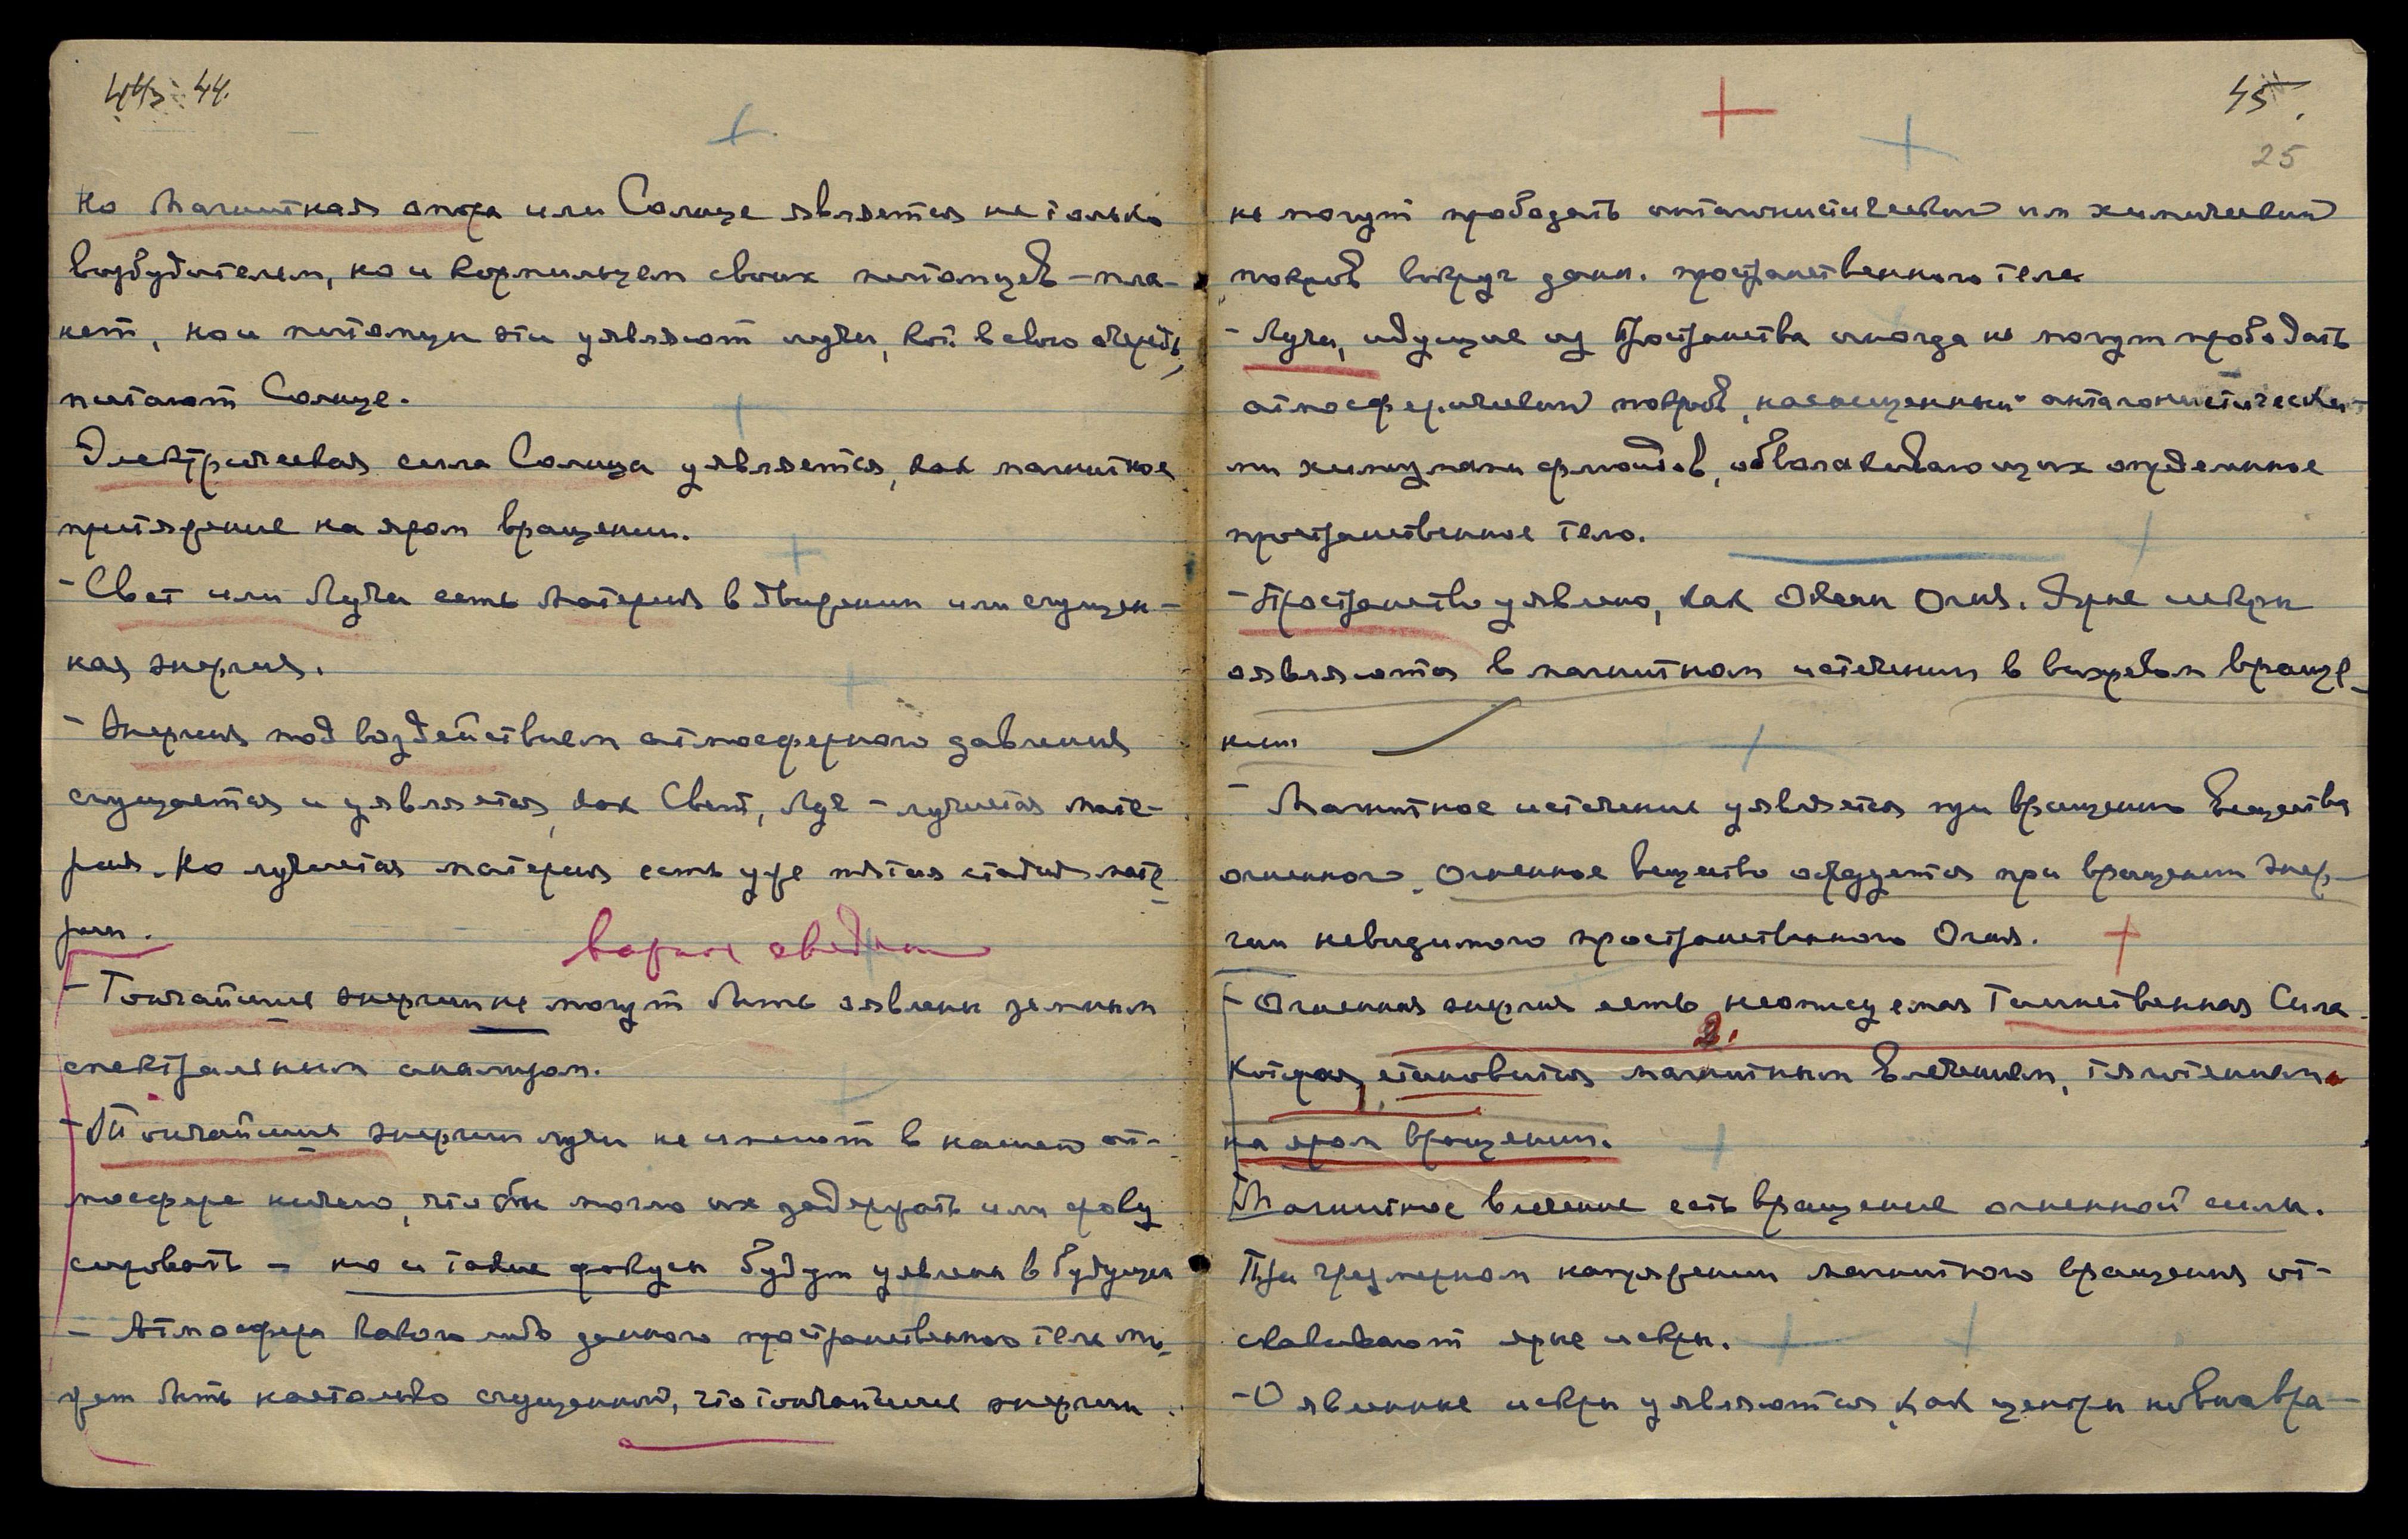 44.
Но Магнитная опора или Солнце является не только
возбудителем, но и кормильцем своих питомцев – пла-
нет, но и питомцы эти уявляют лучи, кот. в свою очередь,
питают Солнце.
Электрическая сила Солнца уявляется, как магнитное
притяжение на яром вращении.
– Свет или Лучи есть Материя в движении или сгущен-
ная энергия.
– Энергия под воздействием атмосферного давления
сгущается и уявляется, как Свет, Луч – лучистая мате-
рия. Но лучистая материя есть уже пятая стадия мате-
рии.
– Тончайшие энергии не могут быть явлены земным
спектральным анализом.
– Тончайшие энергии лучи не имеют в нашей ат-
мосфере ничего, что бы могло их задержать или фоку
сировать – но и такие фокусы будут уявлены в будущем
– Атмосфера какого либо данного пространственного тела мо-
жет быть настолько сгущенной, что тончайшие энергии
45.
25
не могут прободать антагонистический им химический
покров вокруг данн. пространственного тела
– Лучи, идущие из Пространства иногда не могут прободать
атмосферический покров, насыщенный антагонистически-
ми химизмами флюидов, обволакивающих определенное
пространственное тело.
– Пространство уявлено, как Океан Огня. Ярые искры
являются в магнитном истечении в вихревом враще-
нии
– Магнитное истечение уявляется при вращении Вещества
огненного. Огненное вещество образуется при вращении энер-
гии невидимого пространственного Огня.
– Огненная энергия есть неописуемая Таинственная Сила
2.
Которая, становится магнитным Влечением, тяготением
1
на яром вращении.
Магнитное влечение есть вращение огненной силы.
При чрезмерном напряжении магнитного вращения от-
скакивают ярые искры.
– Оявленные искры уявляются, как центры новых вра-